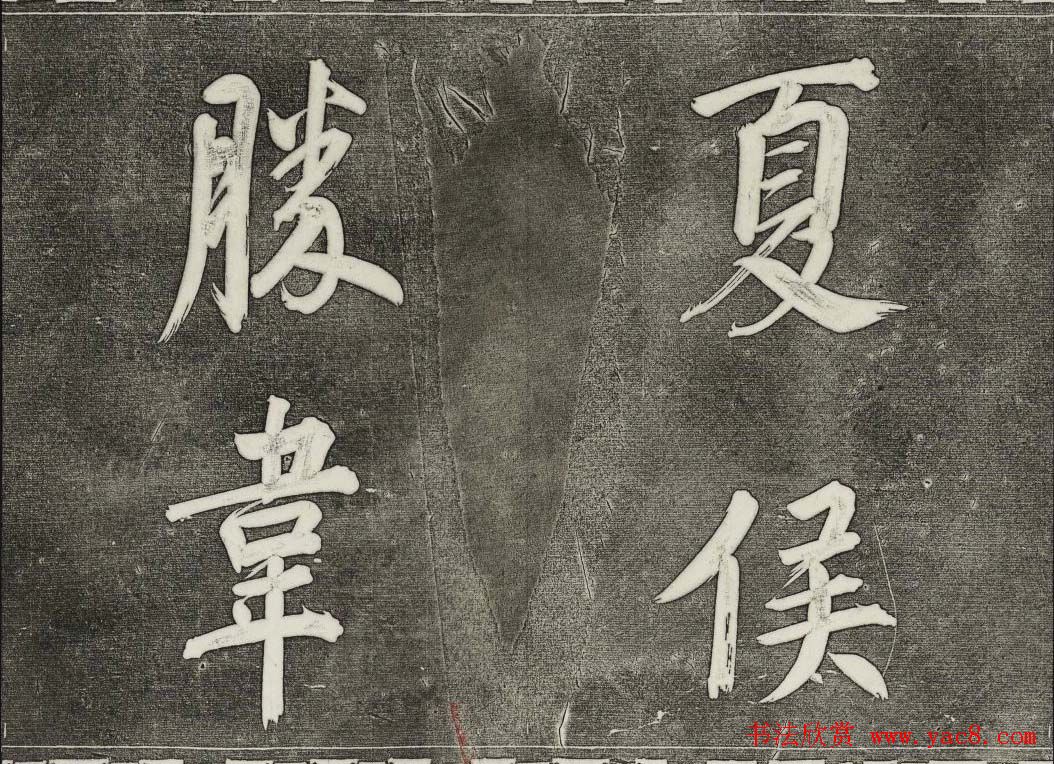 夏侯
勝韋
书法欣赏 www.yac8.com